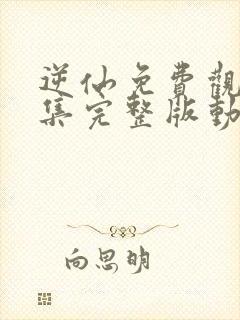 逆仙免費觀
集完整版動
向思明